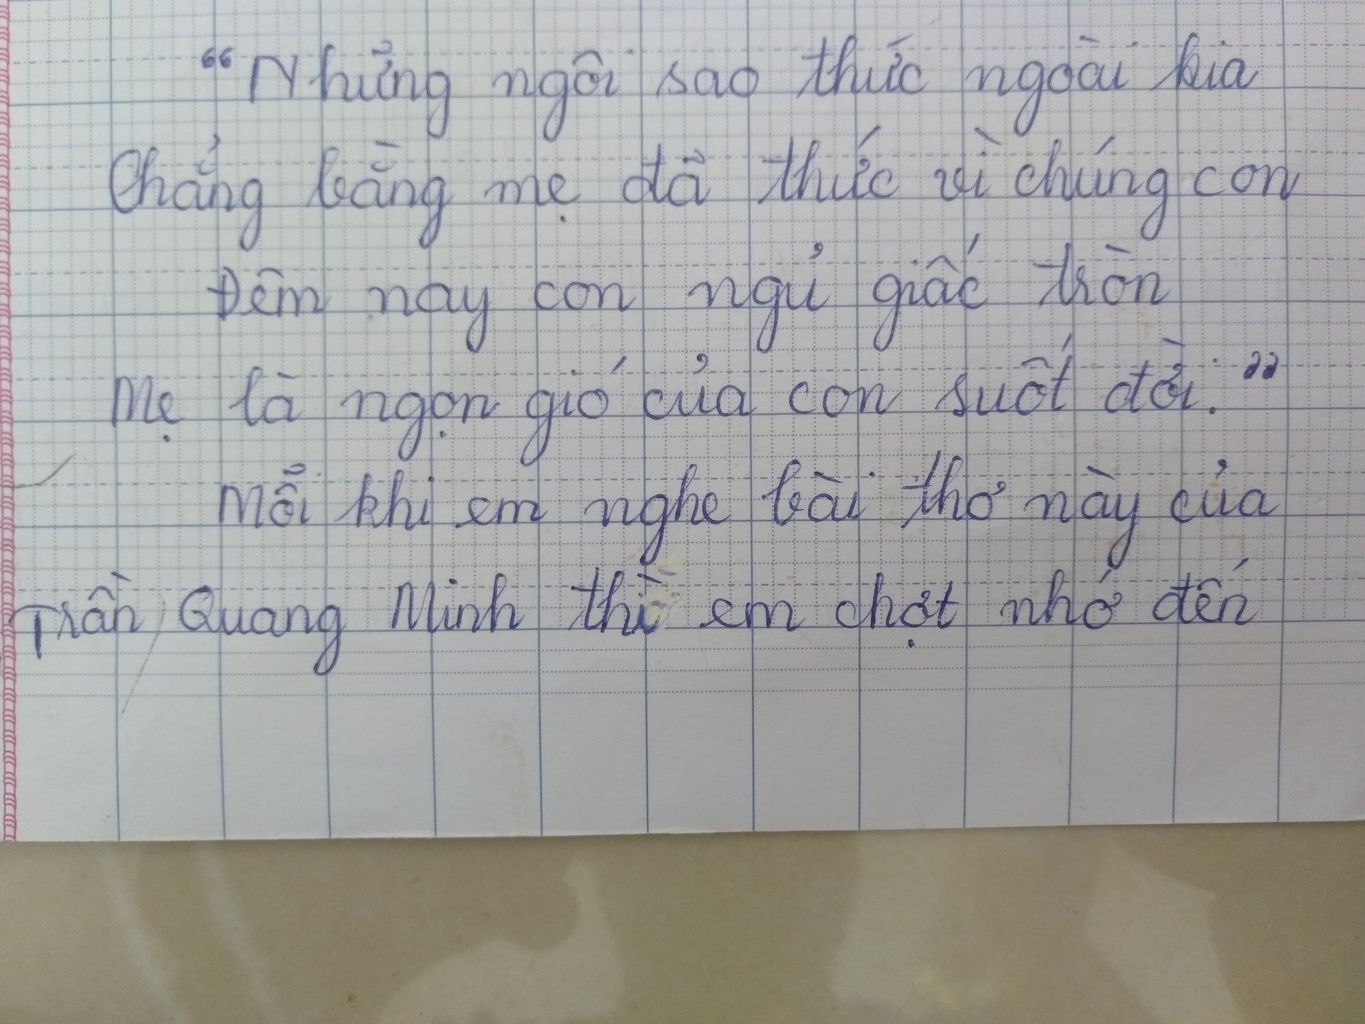 “Những ngôi sao thức ngoài kia
Chẳng bằng mẹ đã thức vì chúng con
Đêm nay con ngủ giấc tròn
Mẹ là ngọn gió của con suốt đời.”
Mỗi khi em nghe bài thơ này của
Trần Quang Minh thì em chợt nhớ đến